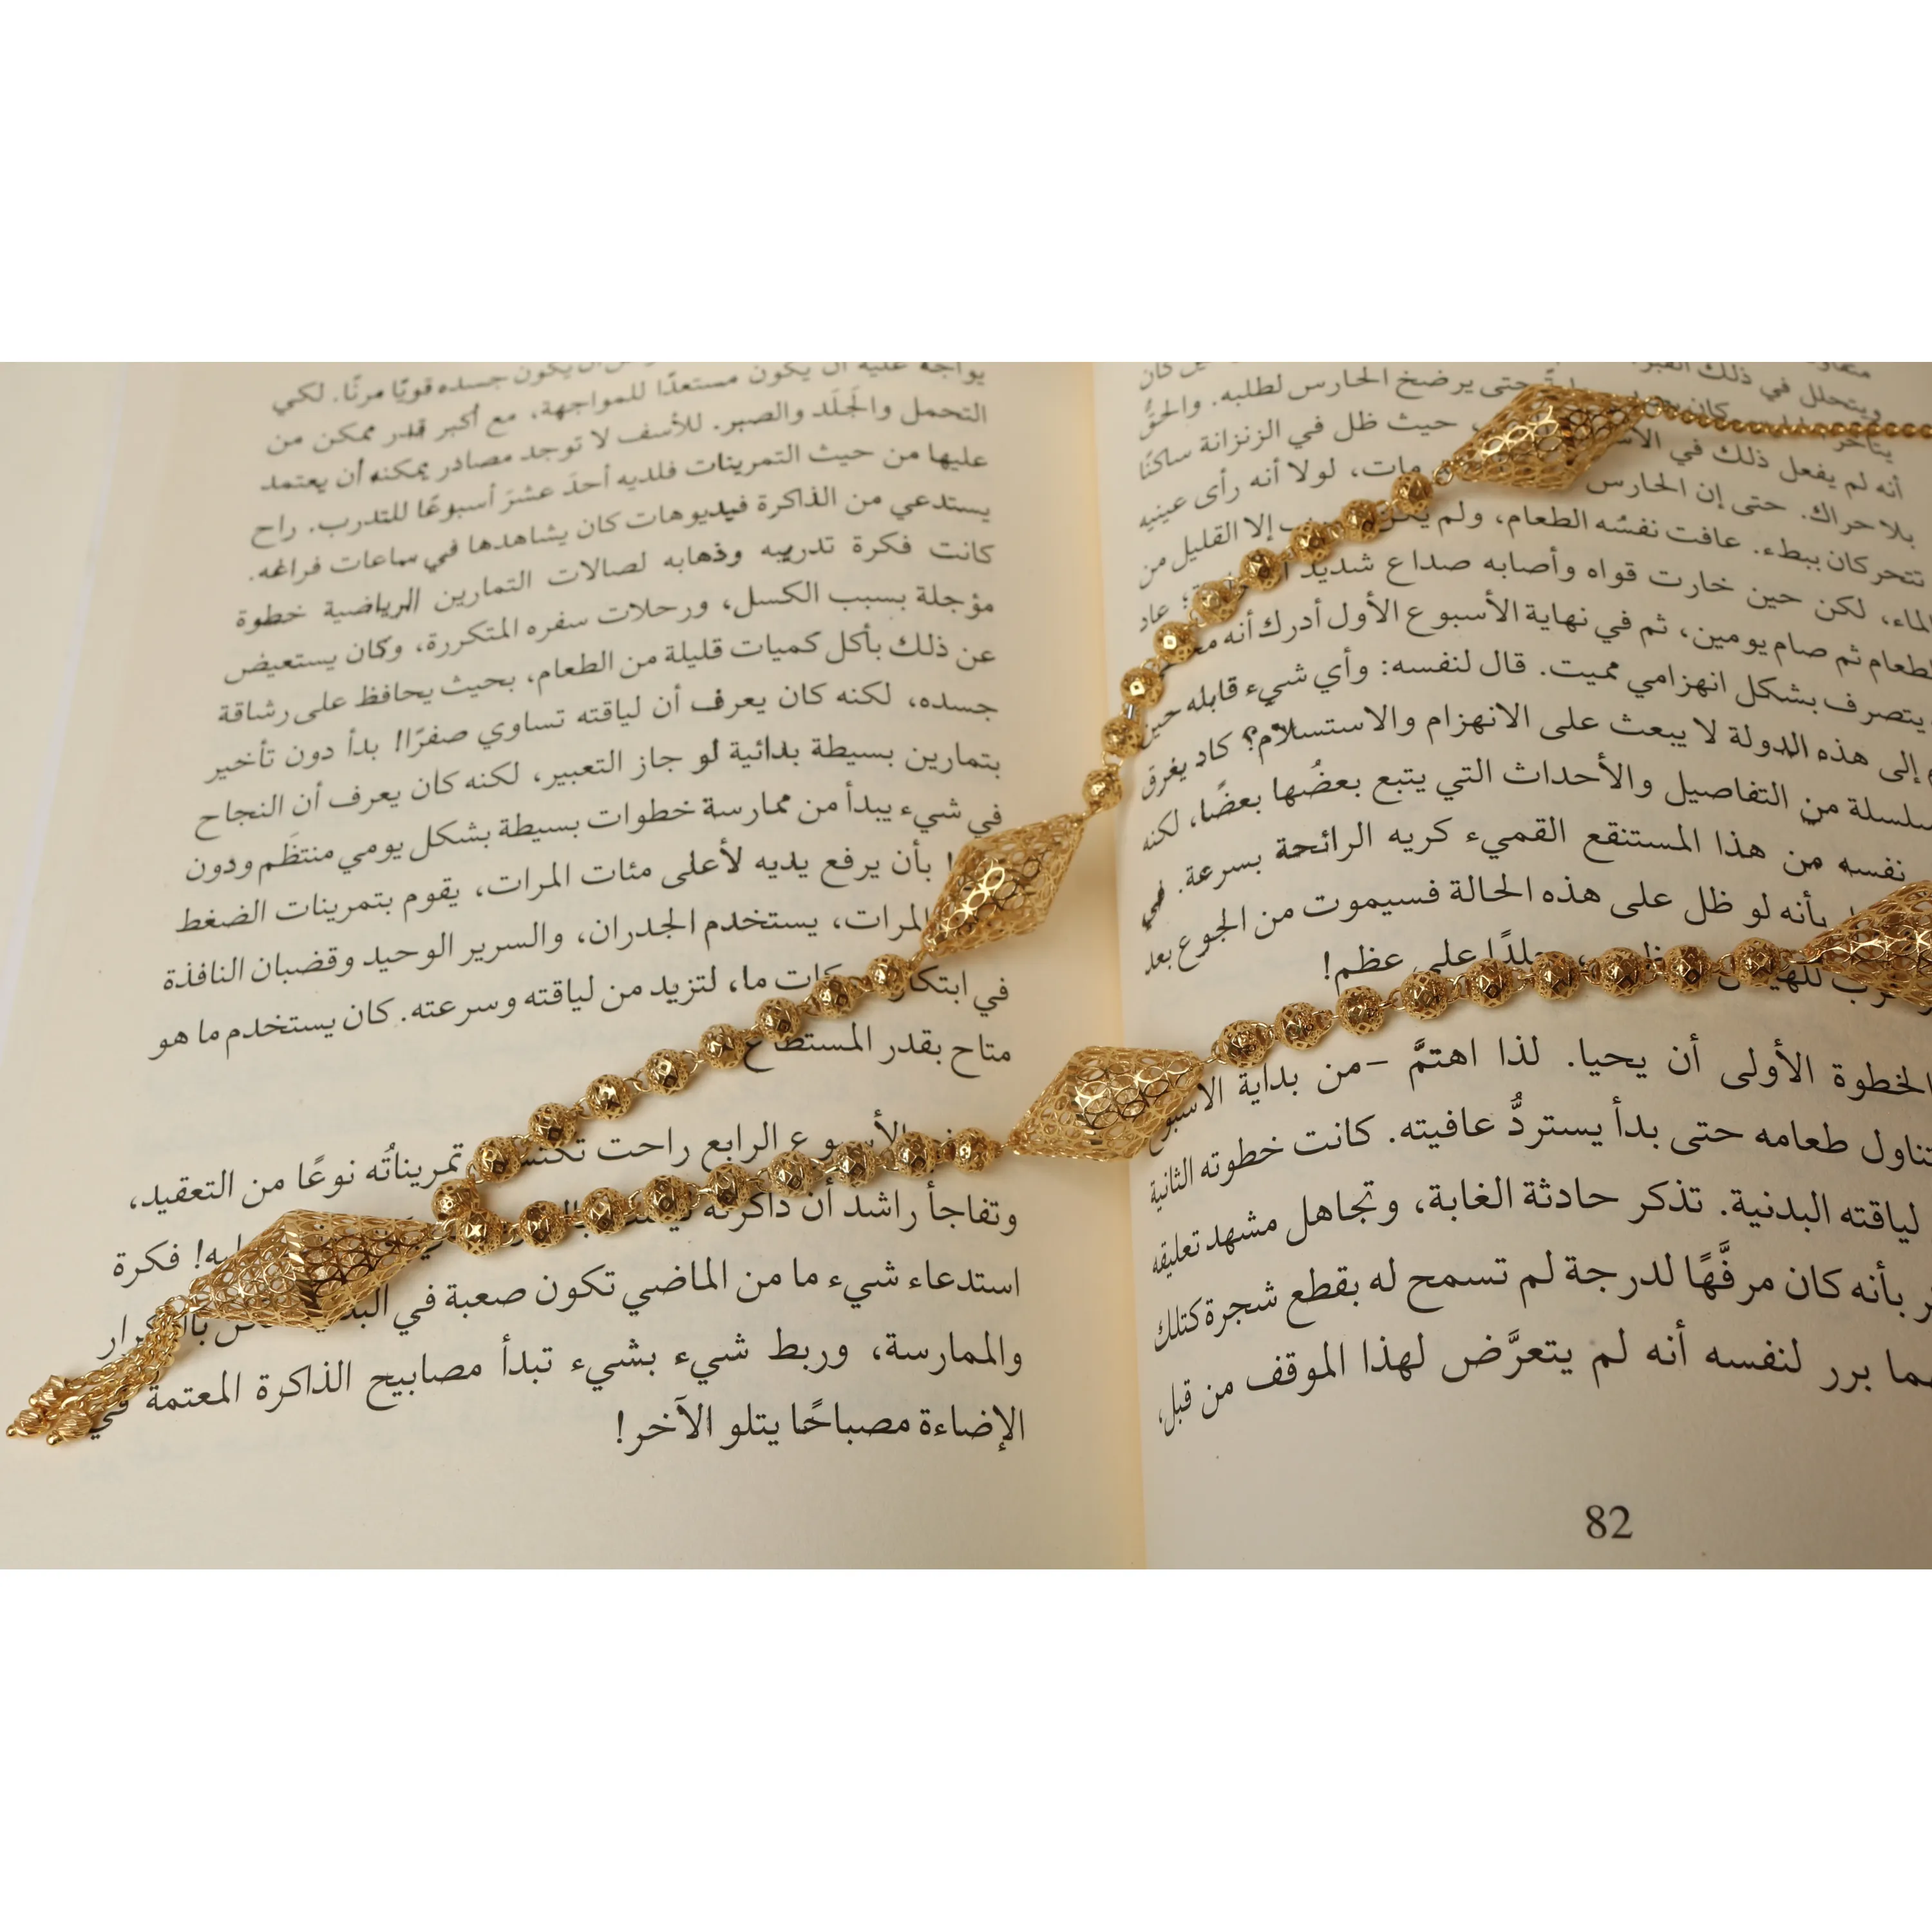 ويتحلل في ذلك القبر
حتى يرضخ الحارس لطلبه. والحقُّ
أنه لم يفعل ذلك في حيث ظل في الزنزانة ساكنًا
بلا حراك. حتى إن الحارس مات، لولا أنه رأى عينيه
تتحركان ببطء. عافت نفسُه الطعام، ولم إلا القليل من
الماء، لكن حين خارت قواه وأصابه صداع شديد عاد
للطعام ثم صام يومين، ثم في نهاية الأسبوع الأول أدرك أنه
يتصرف بشكل انهزامي مميت. قال لنفسه: وأي شيء قابله حين
إلى هذه الدولة لا يبعث على الانهزام والاستسلام؟ كاد يغرق
سلسلة من التفاصيل والأحداث التي يتبع بعضُها بعضًا، لكنه
نفسه من هذا المستنقع القميء كريه الرائحة بسرعة. في
بأنه لو ظل على هذه الحالة فسيموت من الجوع بعد
جلدًا على عظم!
الخطوة الأولى أن يحيا. لذا اهتمَّ -من بداية الأسبوع
طعامه حتى بدأ يستردُّ عافيته. كانت خطوته الثانية
لياقته البدنية. تذكر حادثة الغابة، وتجاهل مشهد تعليقه
بأنه كان مرفَّهًا لدرجة لم تسمح له بقطع شجرة كتلك
برر لنفسه أنه لم يتعرَّض لهذا الموقف من قبل،
82
يواجه عليه أن يكون مستعدًا للمواجهة، مع أكبر قدر ممكن من
التحمل والجَلَد والصبر. للأسف لا توجد مصادر يمكنه أن يعتمد
عليها من حيث التمرينات فلديه أحدَ عشرَ أسبوعًا للتدرب. راح
يستدعي من الذاكرة فيديوهات كان يشاهدها في ساعات فراغه.
كانت فكرة تدريبه وذهابه لصالات التمارين الرياضية خطوة
مؤجلة بسبب الكسل، ورحلات سفره المتكررة، وكان يستعيض
عن ذلك بأكل كميات قليلة من الطعام، بحيث يحافظ على رشاقة
جسده، لكنه كان يعرف أن لياقته تساوي صفرًا! بدأ دون تأخير
بتمارين بسيطة بدائية لو جاز التعبير، لكنه كان يعرف أن النجاح
في شيء يبدأ من ممارسة خطوات بسيطة بشكل يومي منتظَم ودون
بأن يرفع يديه لأعلى مئات المرات، يقوم بتمرينات الضغط
المرات، يستخدم الجدران، والسرير الوحيد وقضبان النافذة
في ابتكار ما، لتزيد من لياقته وسرعته. كان يستخدم ما هو
متاح بقدر المستطاع
الأسبوع الرابع راحت تمريناتُه نوعًا من التعقيد،
وتفاجأ راشد أن ذاكرته فكرة
استدعاء شيء ما من الماضي تكون صعبة في
والممارسة، وربط شيء بشيء تبدأ مصابيح الذاكرة المعتمة في
الإضاءة مصباحًا يتلو الآخر!